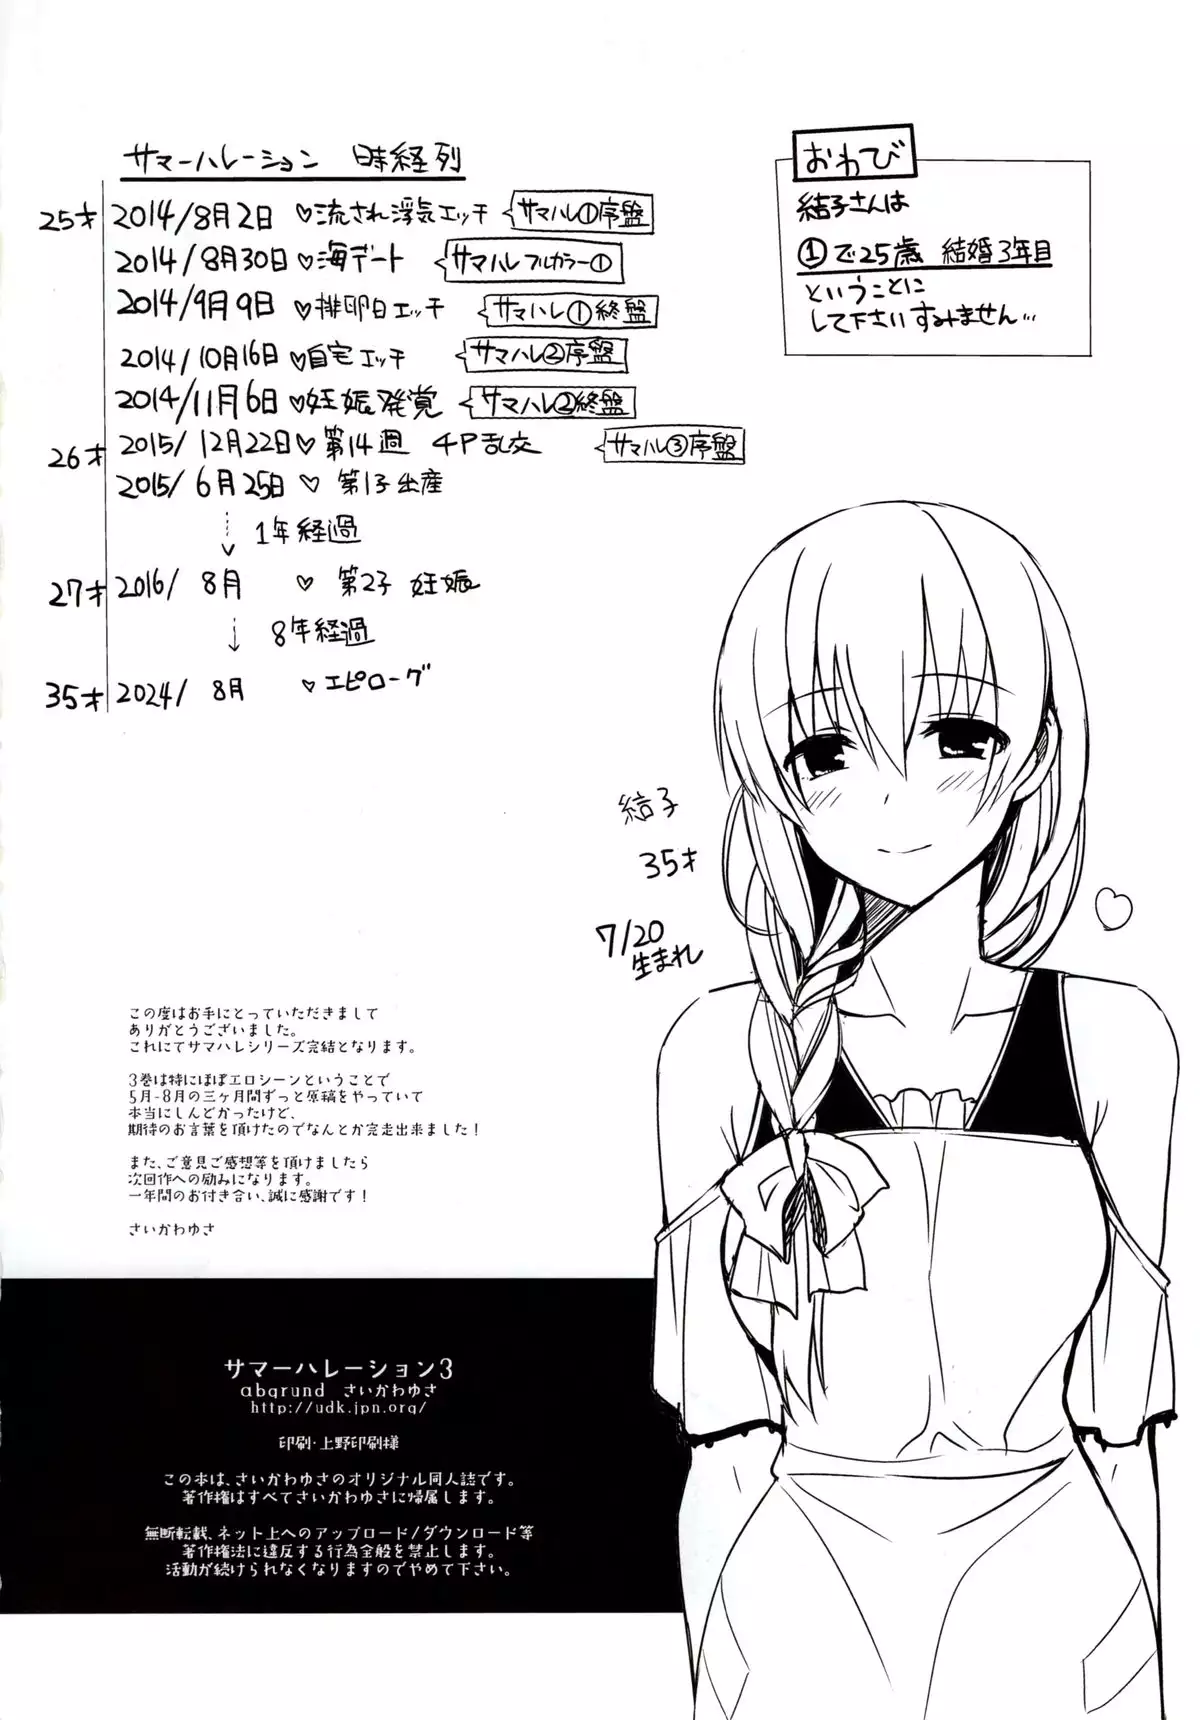 サマーハレーション 時経列
25才 2014/8月2日 ♡流され浮気エッチ サマハレ①序盤
2014/8月30日 ♡海デート サマハレフルカラー①
2014/9月9日 ♡排卵日エッチ サマハレ①終盤
2014/10月16日 ♡自宅エッチ サマハレ②序盤
2014/11月6日 ♡妊娠発覚 サマハレ②終盤
26才 2015/12月22日 ♡第14週 4P乱交 サマハレ③序盤
2015/6月25日 ♡第1子出産
1年経過
27才 2016/8月 ♡第2子 妊娠
8年経過
35才 2024/8月 ♡エピローグ
おわび
結子さんは
①で25歳 結婚3年目
ということに
して下さいすみません…
結子
35才
7/20
生まれ
この度はお手にとっていただきまして
ありがとうございました。
これにてサマハレシリーズ完結となります。
3巻は特にほぼエロシーンということで
5月-8月の三ヶ月間ずっと原稿をやっていて
本当にしんどかったけど、
期待のお言葉を頂けたのでなんとか完走出来ました！
また、ご意見ご感想等を頂けましたら
次回作への励みになります。
一年間のお付き合い、誠に感謝です！
さいかわゆさ
サマーハレーション3
abgrund さいかわゆさ
http://udk.jpn.org/
印刷・上野印刷様
この本は、さいかわゆさのオリジナル同人誌です。
著作権はすべてさいかわゆさに帰属します。
無断転載、ネット上へのアップロード/ダウンロード等
著作権法に違反する行為全般を禁止します。
活動が続けられなくなりますのでやめて下さい。